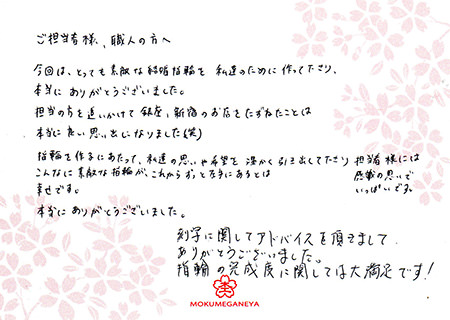 ご担当者様、職人の方へ
今回は、とっても素敵な結婚指輪を 私達のために作って下さり、
本当に ありがとうございました。
担当の方を追いかけて 銀座、新宿のお店をたずねたことは
本当に良い思い出になりました(笑)
指輪を作るにあたって、私達の思いや希望を 温かく引き出して下さり 担当者様には
感謝の思いで
いっぱいです。
こんなに素敵な指輪が、これからずっと左手にあるとは
幸せです。
本当に ありがとうございました。
刻字に関してアドバイスを頂きまして
ありがとうございました。
指輪の完成度に関しては大満足です!
MOKUMEGANEYA